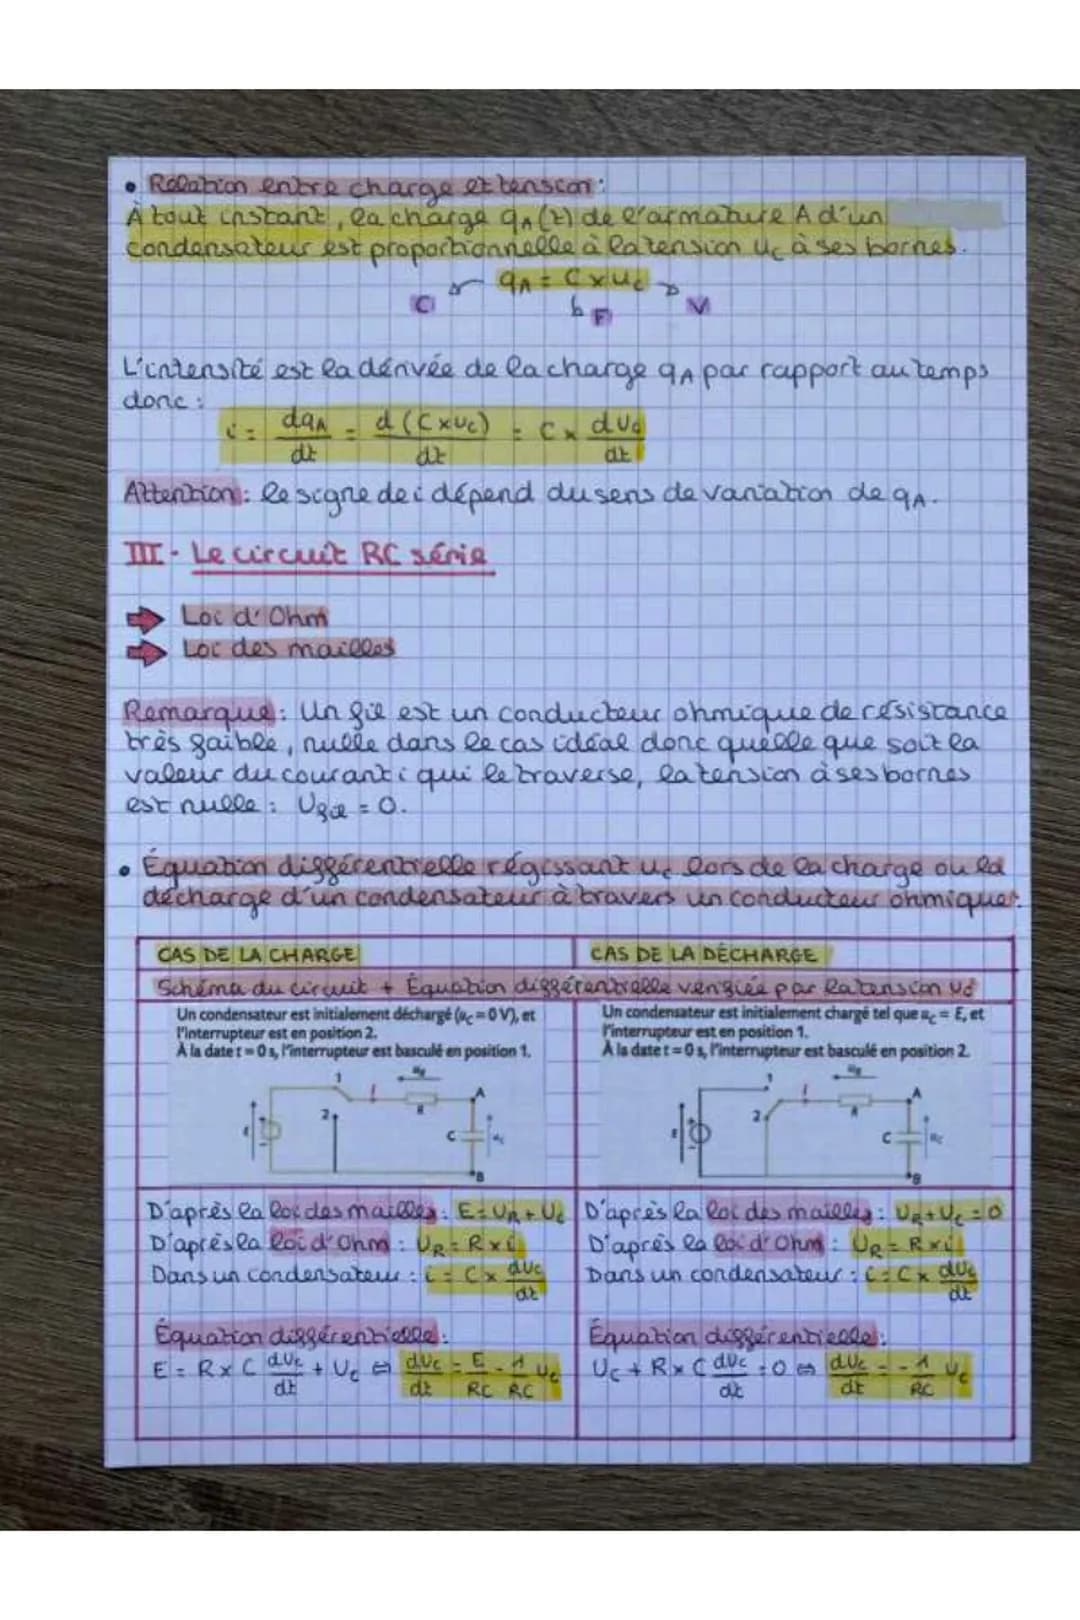 • Relation entre charge et tension :
À tout instant, la charge qA(t) de l'armature A d'un
condensateur est proportionnelle à la tension Uc à ses bornes.
qA = C × Uc
C F V
L'intensité est la dérivée de la charge qA par rapport au temps
donc :
i = dqA/dt = d(C×Uc)/dt = C × dUc/dt
Attention : le signe de i dépend du sens de variation de qA.
III - Le circuit RC série
➡ Loi d'Ohm
➡ Loi des mailles
Remarque : Un fil est un conducteur ohmique de résistance
très faible, nulle dans le cas idéal donc quelle que soit la
valeur du courant i qui le traverse, la tension à ses bornes
est nulle : Ufil = 0.
• Équation différentielle régissant uc lors de la charge ou la
décharge d'un condensateur à travers un conducteur ohmique.
CAS DE LA CHARGE
CAS DE LA DÉCHARGE
Schéma du circuit + Équation différentielle vérifiée par la tension Uc
Un condensateur est initialement déchargé (uc = 0 V), et
l'interrupteur est en position 2.
À la date t = 0 s, l'interrupteur est basculé en position 1.
1 uR A
2 R
E C uc
B
Un condensateur est initialement chargé tel que uc = E, et
l'interrupteur est en position 1.
À la date t = 0 s, l'interrupteur est basculé en position 2.
1 uR A
2 R
E C uc
B
D'après la loi des mailles : E = UR + Uc
D'après la loi d'Ohm : UR = R × i
Dans un condensateur : i = C × dUc/dt
Équation différentielle :
E = R × C dUc/dt + Uc ⇔ dUc/dt = E/RC - 1/RC Uc
D'après la loi des mailles : UR + Uc = 0
D'après la loi d'Ohm : UR = R × i
Dans un condensateur : i = C × dUc/dt
Équation différentielle :
Uc + R × C dUc/dt = 0 ⇔ dUc/dt = - 1/RC Uc